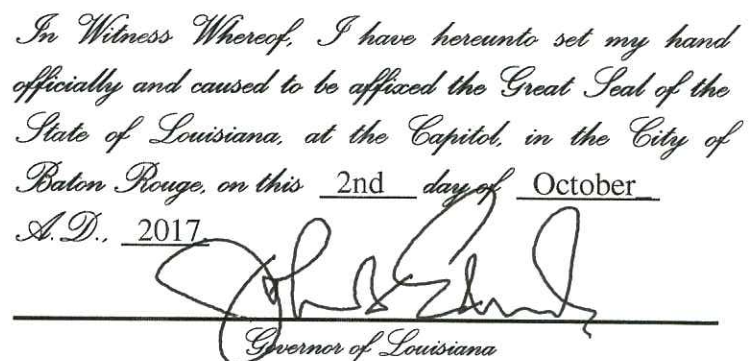 In Witness Whereof, I have hereunto set my hand
officially and caused to be affixed the Great Seal of the
State of Louisiana, at the Capitol, in the City of
Baton Rouge, on this 2nd day of October
A.D., 2017
John B Edwards
Governor of Louisiana